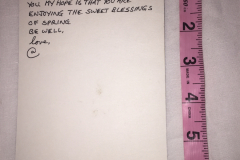 YOU. MY HOPE IS THAT YOU ARE
ENJOYING THE SWEET BLESSINGS
OF SPRING
BE WELL,
love,
@
2
3
4
5